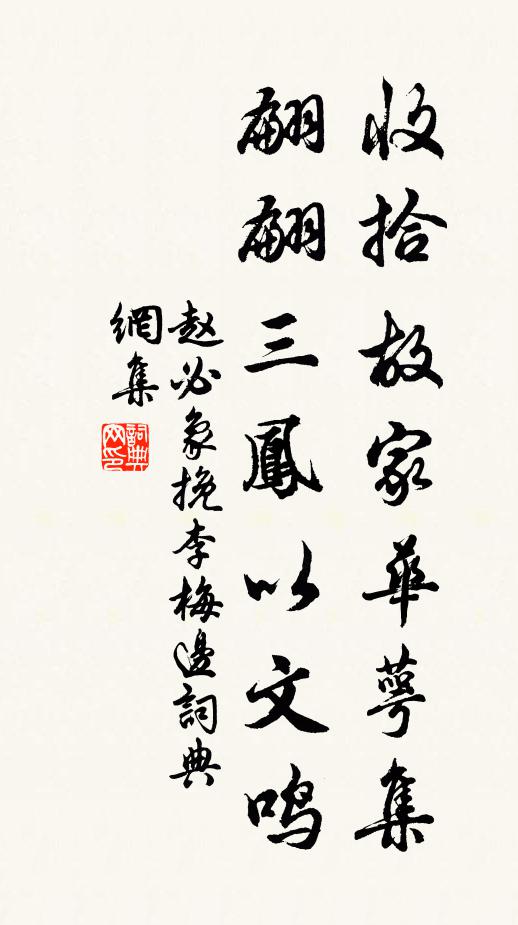 收拾故家華萼集
翩翩三鳳以文鳴
赵必象挽李梅邊詞典
網集
詞典
网印